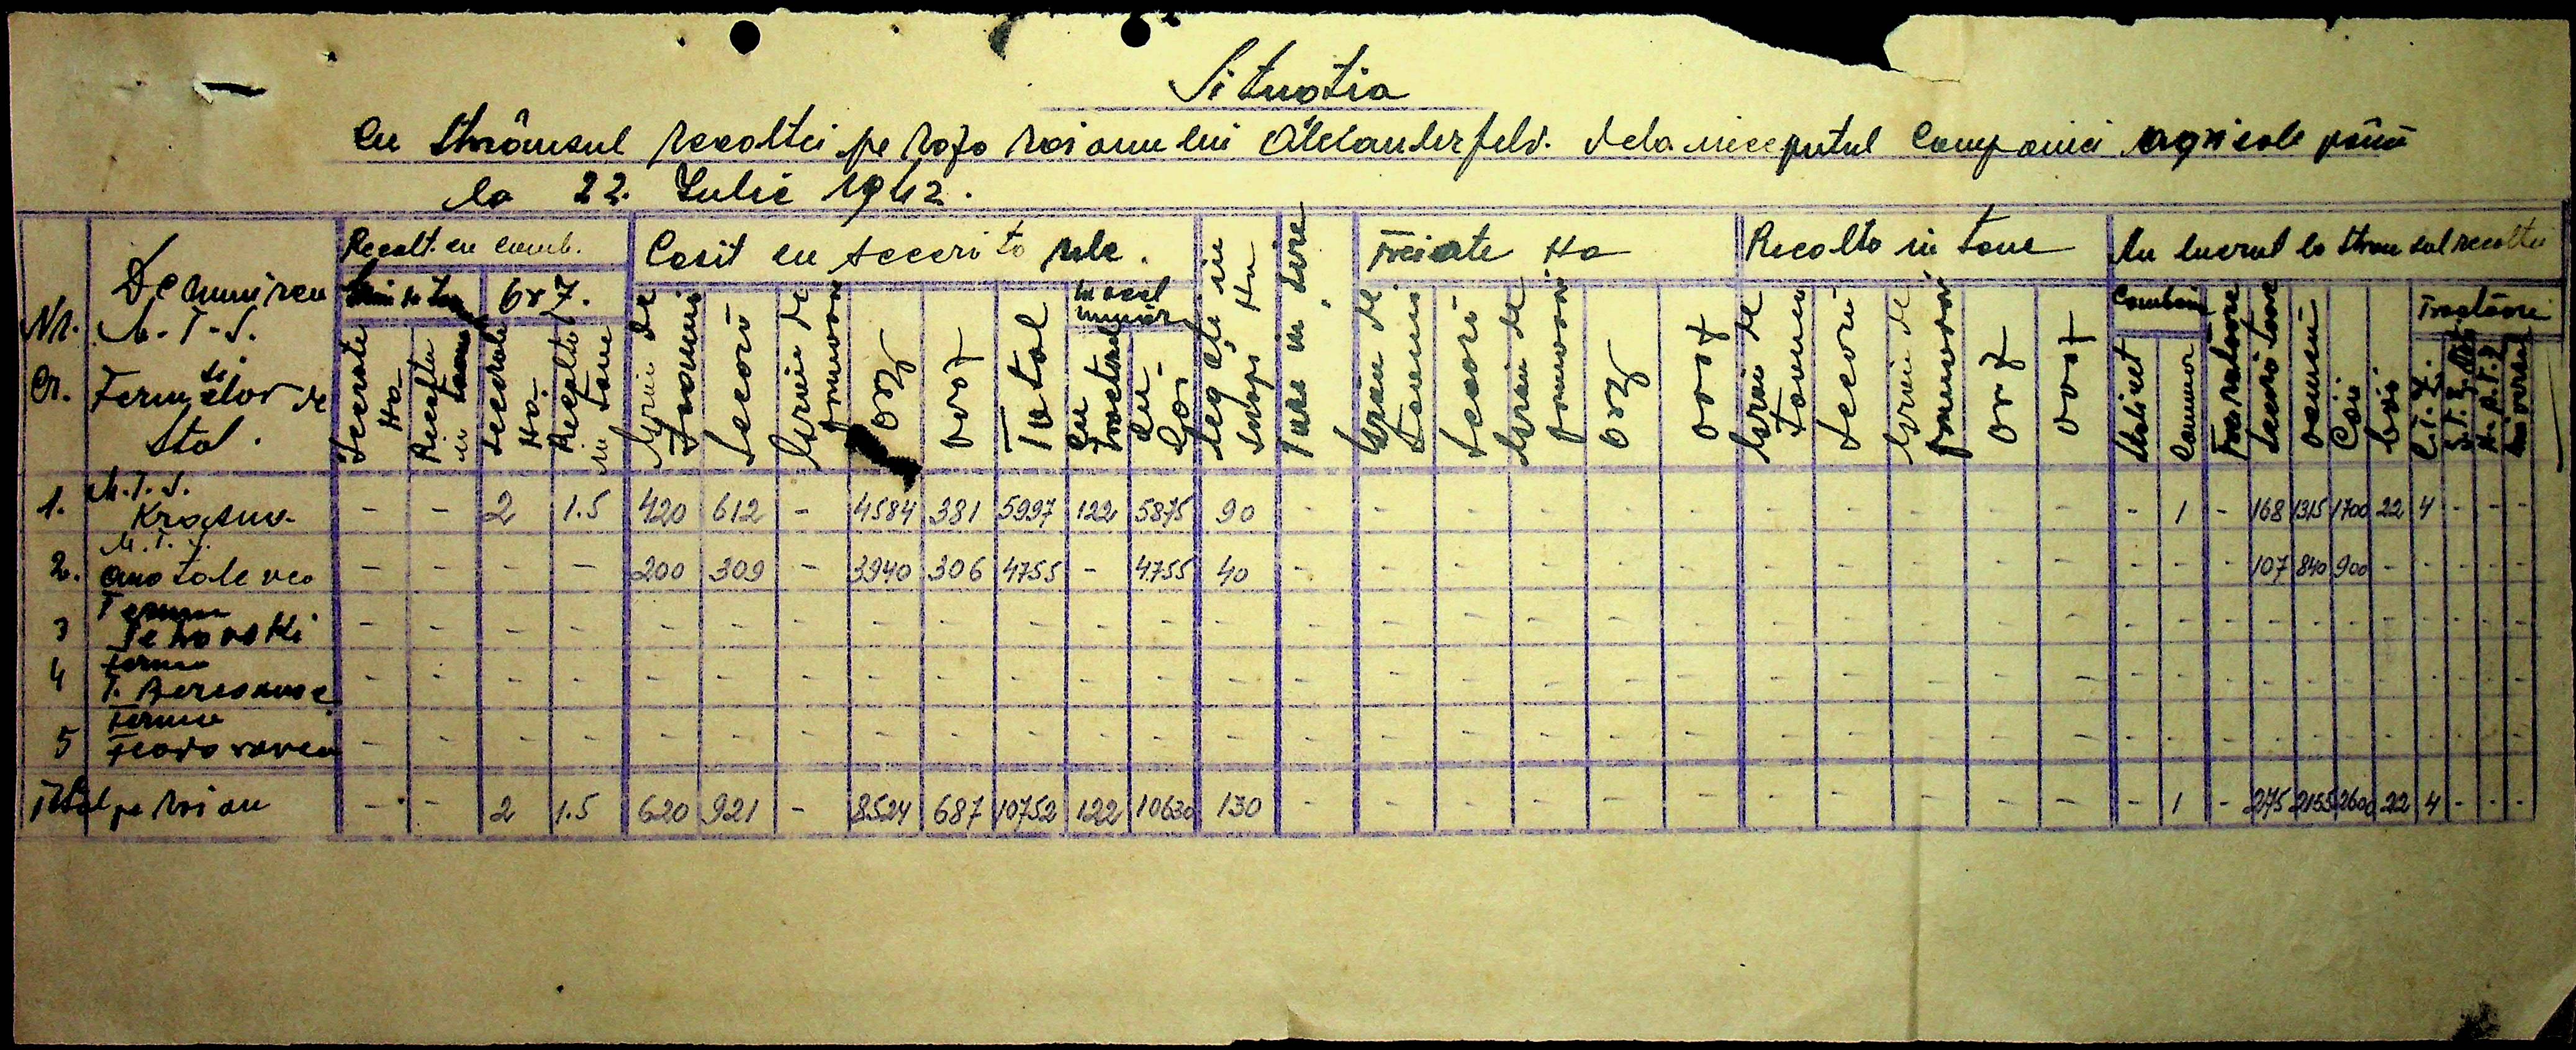 Situația
Cu strânsul recoltei pe raza raionului Alexanderfeld. dela inceputul Campaniei agricole până
la 22. Iulie 1942.
Nr. Cr.
Denumirea
M.T.S.
si
Fermelor de
Stat.
Recolt. cu comb.
Orz.
Secerate Ha
Recolta in tone
Secerate Ha
Recolta in tone
Cosit cu seceri to rele.
Grâu de toamna
Secară
Grâu de primavara
Orz
Ovăz
Total
In acest număr
Cu tractorul
Cu Cai
Legate in snopi Ha
Puse in sire
Treerate Ha
Grâu de toamna
Secară
Grâu de primavara
Orz
Ovăz
Recolta in tone
Grâu de toamna
Secară
Grâu de primavara
Orz
Ovăz
Au lucrat la stransul recoltei
Combine
Stalinet
Comunar
Secerătoare
oameni
Cai
boi
Tractoare
1. M.T.S. Krasna - - 2 1.5 420 612 - 4584 381 5997 122 5875 90 - - - - - - - - - - - - 1 - 168 1315 1700 22 4 - - -
2. M.T.S. Anatalevca - - - - 200 309 - 3940 306 4755 - 4755 40 - - - - - - - - - - - - - - 107 840 900 - - - - -
3 Ferma - - - - - - - - - - - - - - - - - - - - - - - - - - - - - - - - - - -
4 Ferma - - - - - - - - - - - - - - - - - - - - - - - - - - - - - - - - - - -
5 Ferma Feodorovca - - - - - - - - - - - - - - - - - - - - - - - - - - - - - - - - - - -
Total pe raion - - 2 1.5 620 921 - 8524 687 10752 122 10630 130 - - - - - - - - - - - - 1 - 275 2155 2600 22 4 - - -